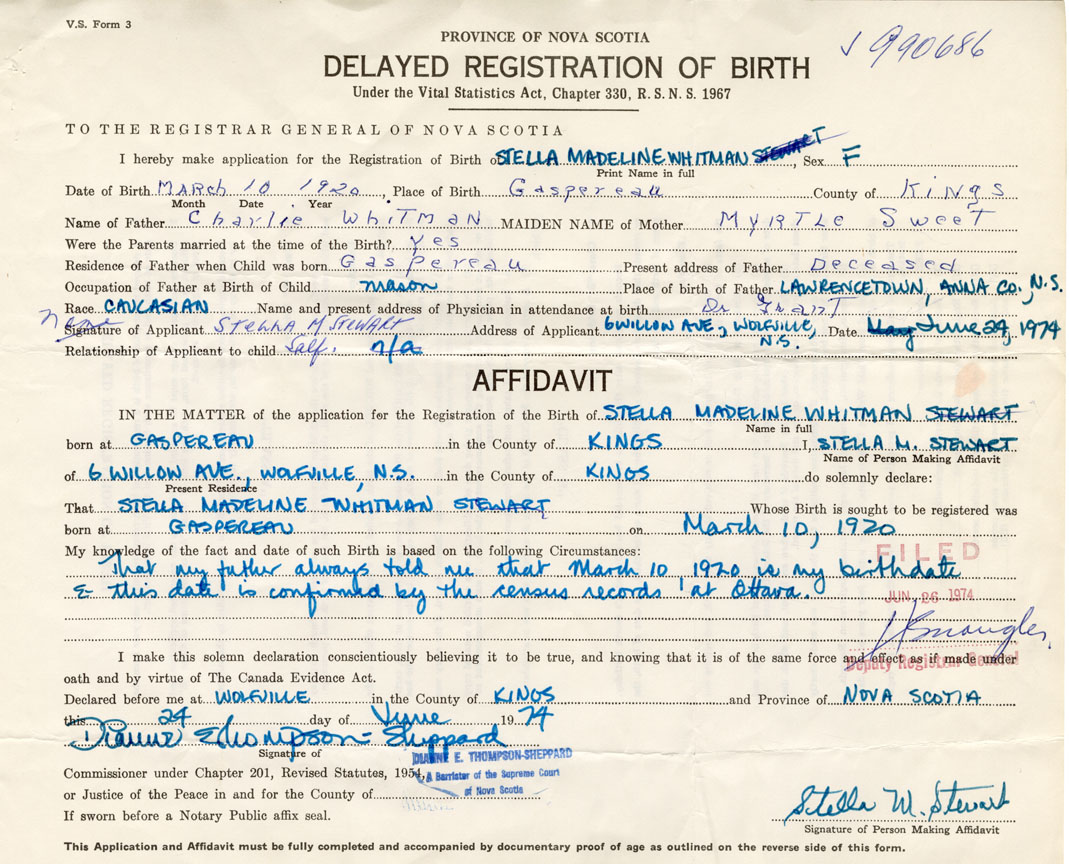 V.S. Form 3
PROVINCE OF NOVA SCOTIA
√ 990686
DELAYED REGISTRATION OF BIRTH
Under the Vital Statistics Act, Chapter 330, R. S. N. S. 1967
TO THE REGISTRAR GENERAL OF NOVA SCOTIA
I hereby make application for the Registration of Birth of STELLA MADELINE WHITMAN STEWART, Sex F
Print Name in full
Date of Birth MARCH 10 1920, Place of Birth Gaspereau County of Kings
Month Date Year
Name of Father Charlie Whitman MAIDEN NAME of Mother MYRTLE SWEET
Were the Parents married at the time of the Birth? Yes
Residence of Father when Child was born Gaspereau Present address of Father Deceased
Occupation of Father at Birth of Child mason Place of birth of Father LAWRENCETOWN, ANNA CO., N.S.
Race CAUCASIAN Name and present address of Physician in attendance at birth Dr
Name
Signature of Applicant STELLA M STEWART Address of Applicant 6 WILLOW AVE., WOLFVILLE, N.S. Date May June 24, 1974
Relationship of Applicant to child Self. n/a
AFFIDAVIT
IN THE MATTER of the application for the Registration of the Birth of STELLA MADELINE WHITMAN STEWART
Name in full
born at GASPEREAU in the County of KINGS I, STELLA M. STEWART
Name of Person Making Affidavit
of 6 WILLOW AVE., WOLFVILLE, N.S. in the County of KINGS do solemnly declare:
Present Residence
That STELLA MADELINE WHITMAN STEWART Whose Birth is sought to be registered was
born at GASPEREAU on March 10, 1920
My knowledge of the fact and date of such Birth is based on the following Circumstances:
FILED
That my father always told me that March 10 1920 is my birthdate
& this date is confirmed by the census records at Ottawa.
JUN 26 1974
I make this solemn declaration conscientiously believing it to be true, and knowing that it is of the same force and effect as if made under
Deputy Registrar General
oath and by virtue of The Canada Evidence Act.
Declared before me at WOLFVILLE in the County of KINGS and Province of NOVA SCOTIA
this 24 day of June 19 74
Dianne E Thompson-Sheppard
Signature of
DIANNE E. THOMPSON-SHEPPARD
Commissioner under Chapter 201, Revised Statutes, 1954,
A Barrister of the Supreme Court
or Justice of the Peace in and for the County of
of Nova Scotia
If sworn before a Notary Public affix seal.
Stella M. Stewart
Signature of Person Making Affidavit
This Application and Affidavit must be fully completed and accompanied by documentary proof of age as outlined on the reverse side of this form.